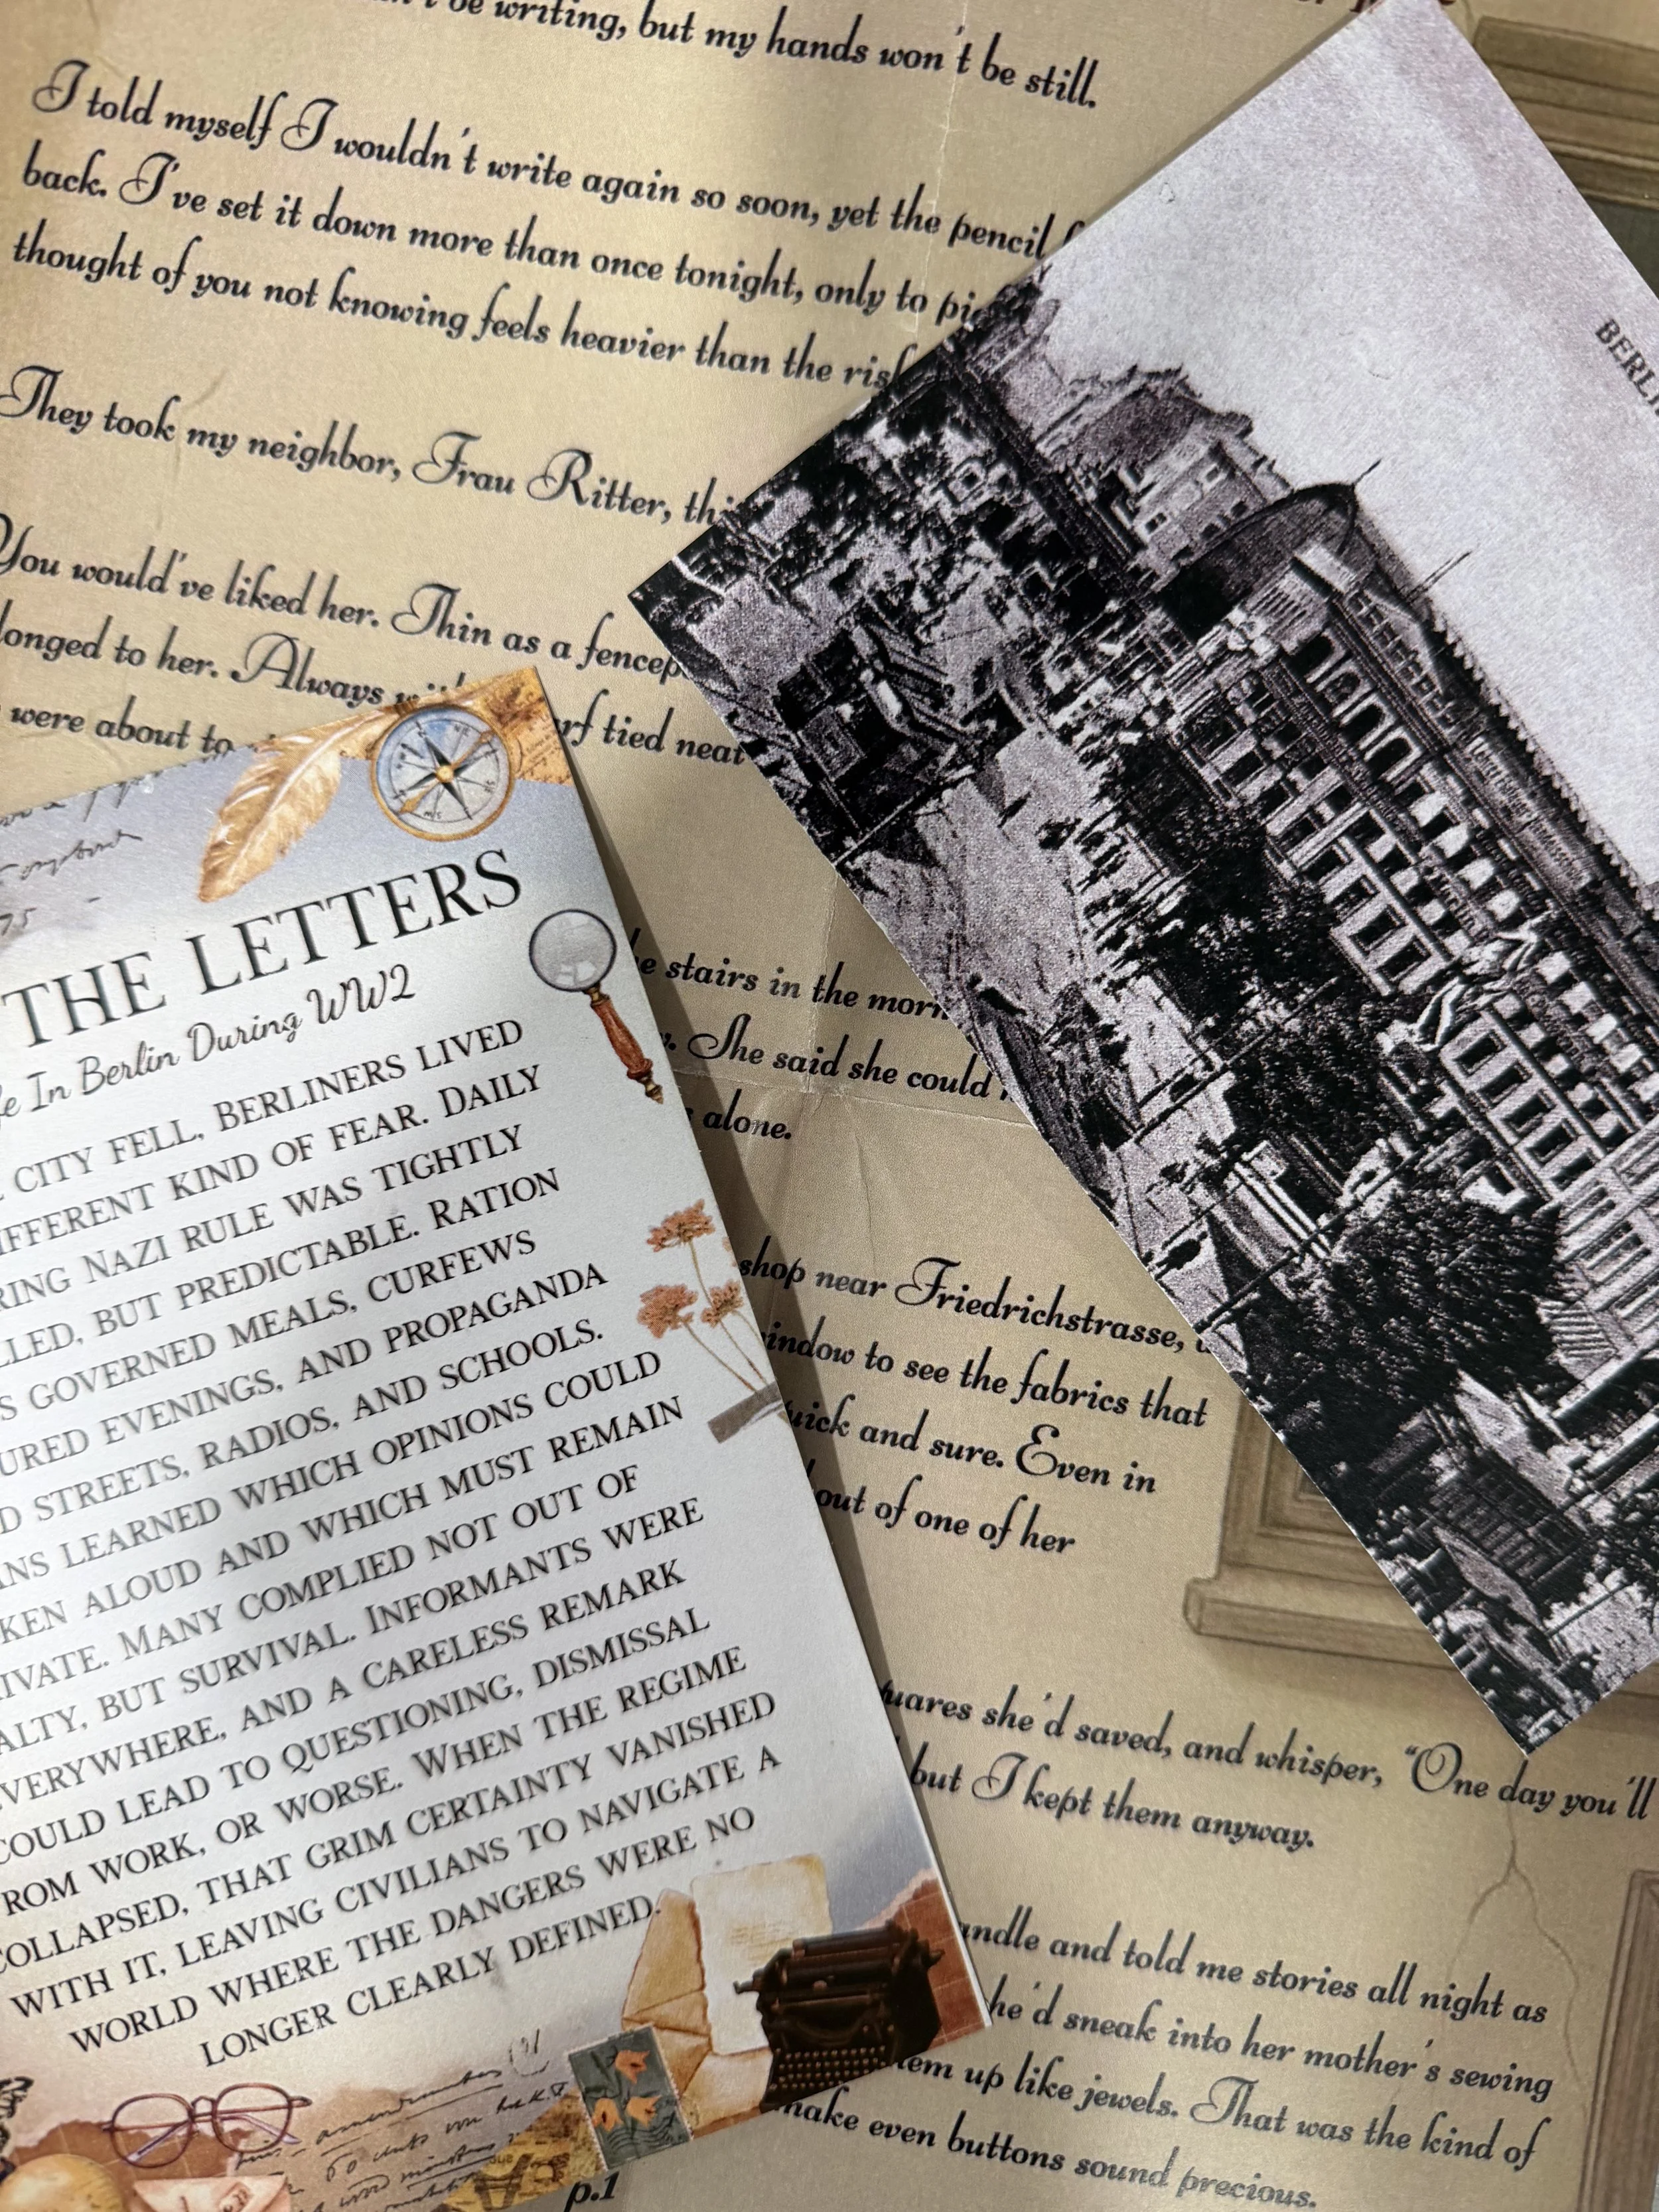 be writing, but my hands won't be still.
I told myself I wouldn't write again so soon, yet the pencil
back. I've set it down more than once tonight, only to
thought of you not knowing feels heavier than the
They took my neighbor, Frau Ritter,
You would've liked her. Thin as a
longed to her. Always tied neat
were about to
stairs in the
She said she could
alone.
shop near Friedrichstrasse,
to see the fabrics that
and sure. Even in
out of one of her
she'd saved, and whisper, "One day you'll
but I kept them anyway.
and told me stories all night as
he'd sneak into her mother's sewing
up like jewels. That was the kind of
make even buttons sound precious.
p.1
THE LETTERS
In Berlin During WW2
CITY FELL, BERLINERS LIVED
KIND OF FEAR. DAILY
NAZI RULE WAS TIGHTLY
BUT PREDICTABLE. RATION
GOVERNED MEALS, CURFEWS
EVENINGS, AND PROPAGANDA
STREETS, RADIOS, AND SCHOOLS.
LEARNED WHICH OPINIONS COULD
ALOUD AND WHICH MUST REMAIN
MANY COMPLIED NOT OUT OF
BUT SURVIVAL. INFORMANTS WERE
AND A CARELESS REMARK
COULD LEAD TO QUESTIONING, DISMISSAL
FROM WORK, OR WORSE. WHEN THE REGIME
COLLAPSED, THAT GRIM CERTAINTY VANISHED
WITH IT, LEAVING CIVILIANS TO NAVIGATE A
WORLD WHERE THE DANGERS WERE NO
LONGER CLEARLY DEFINED.